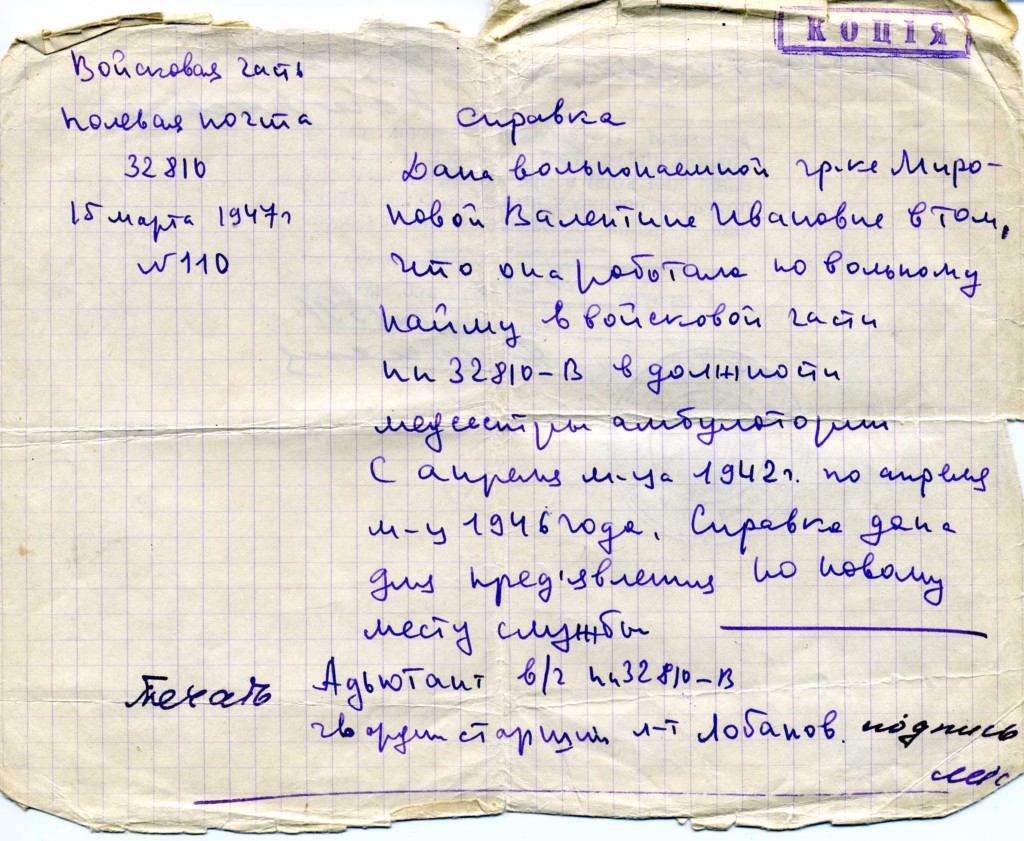 КОПІЯ
Войсковая часть
полевая почта
32810
15 марта 1947г
N 110
Справка
Дана вольнонаемной гр-ке Миро-
новой Валентине Ивановне в том,
что она работала по вольному
найму в войсковой части
пп 32810-В в должности
медсестры амбулатории
С апреля м-ца 1942г. по апреля
м-ц 1946 года. Справка дана
для пред'явления по новому
месту службы
Адьютант в/ч пп 32810-В
Печать
гвардии старший л-т Лобанов. подпись